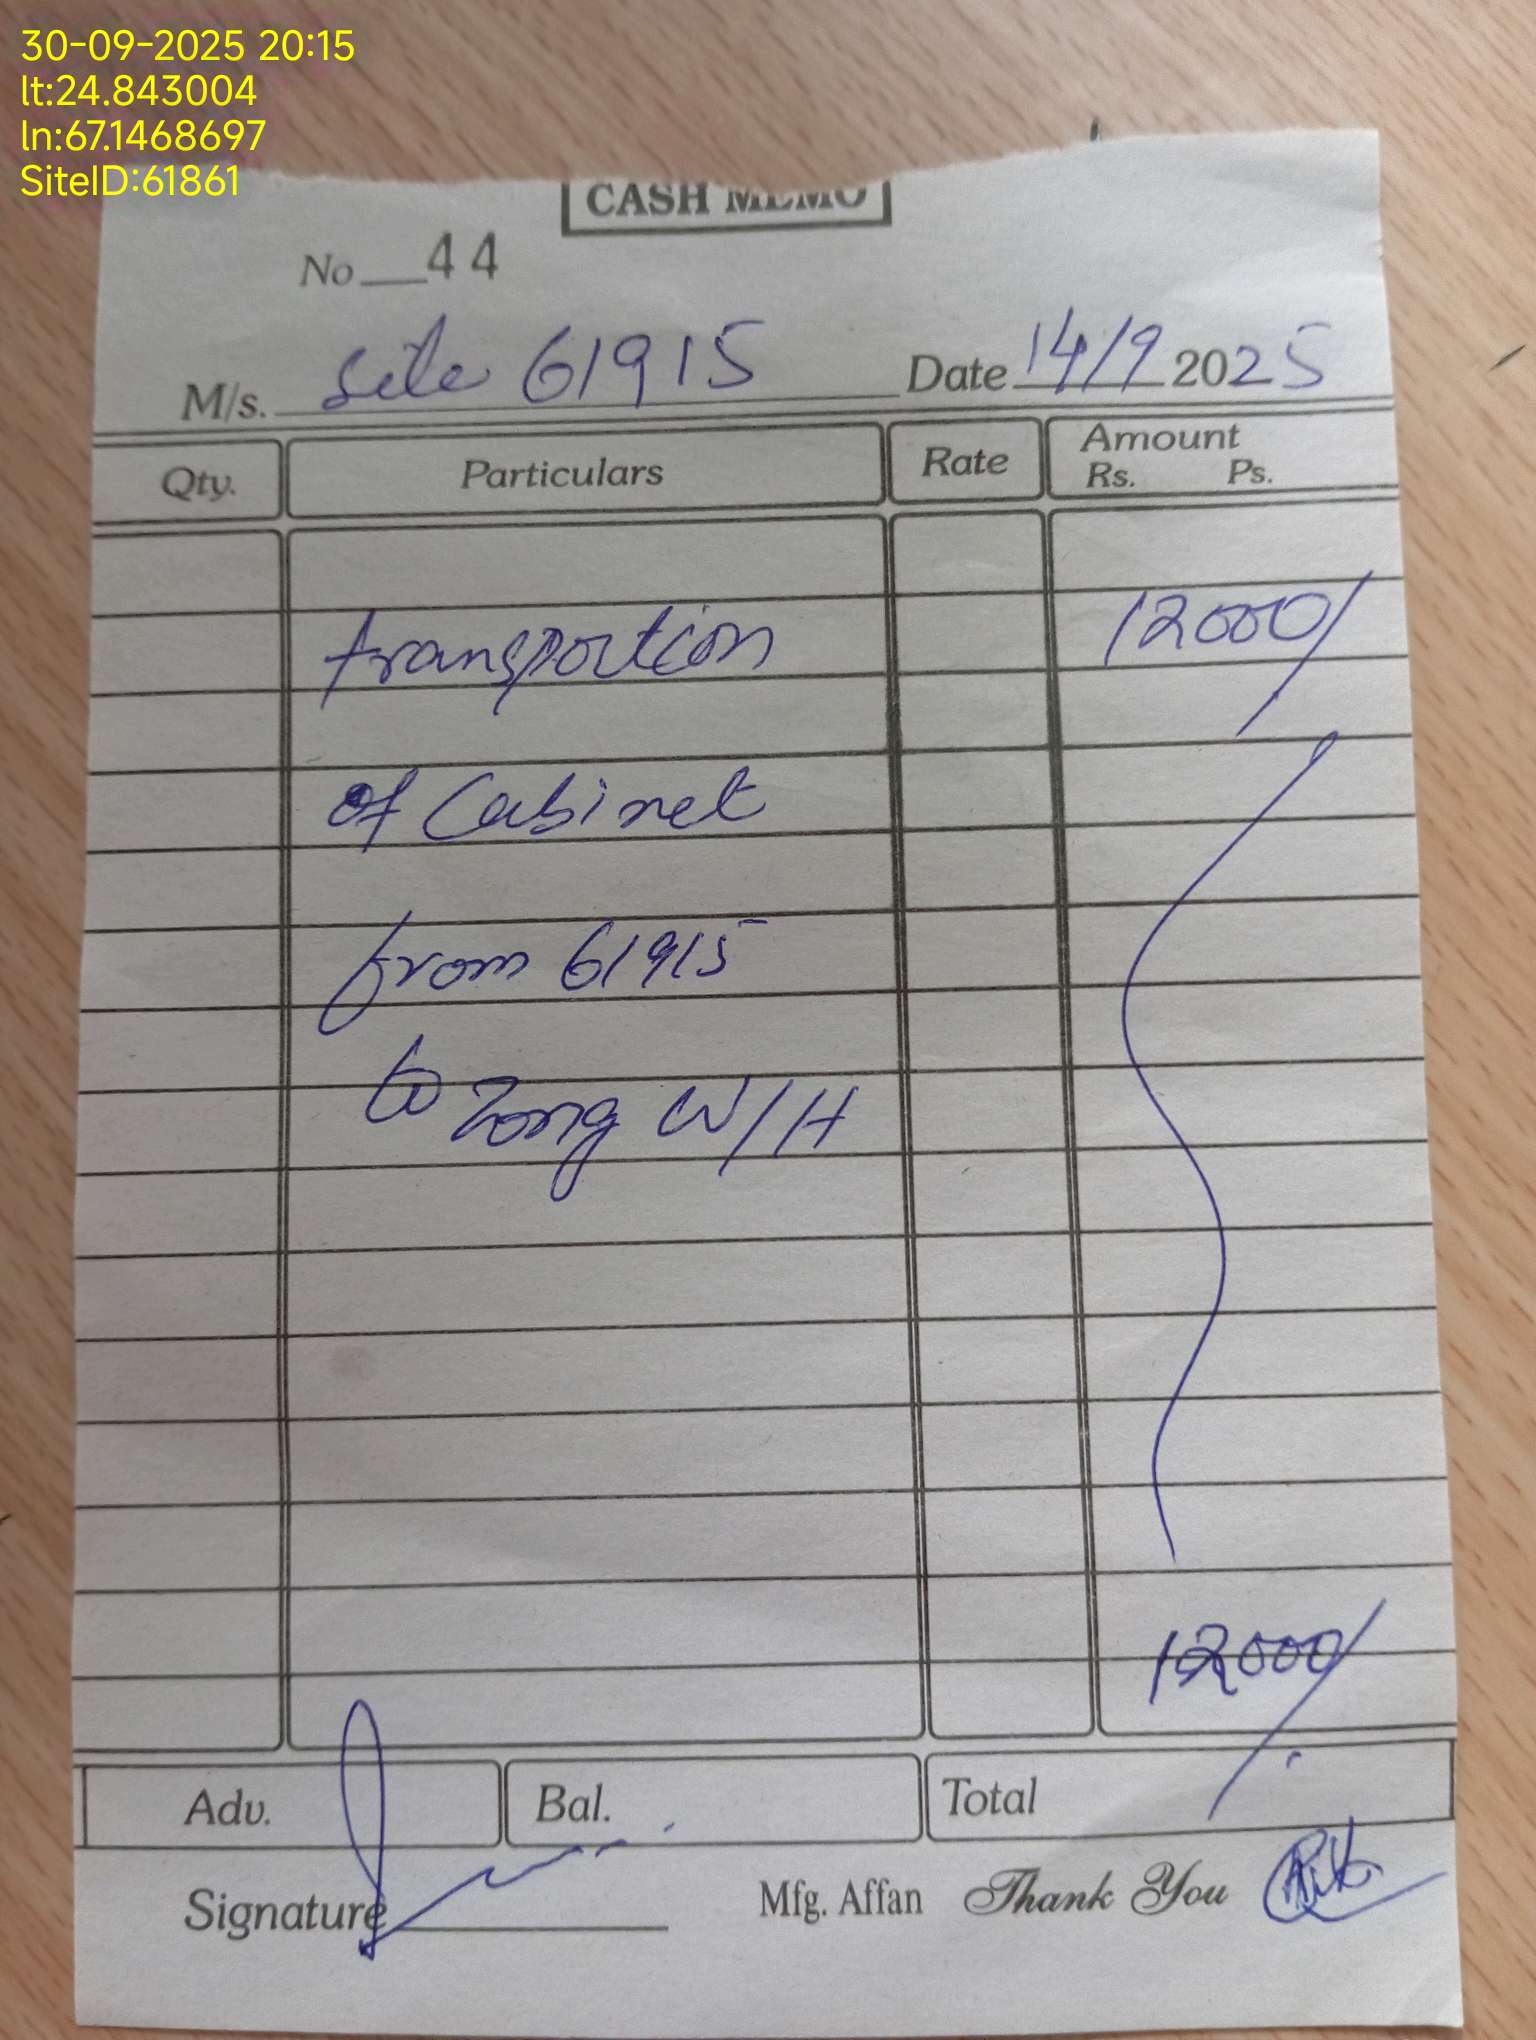 30-09-2025 20:15
lt:24.843004
ln:67.1468697
SiteID:61861
CASH MEMO
No 44
M/s. Site 61915 Date 14/9 2025
Qty. Particulars Rate Amount
Rs. Ps.
transportion 12000/
of Cabinet
from 61915
to Zong W/H
12000/
Adv. Bal. Total
Signature Mfg. Affan Thank You